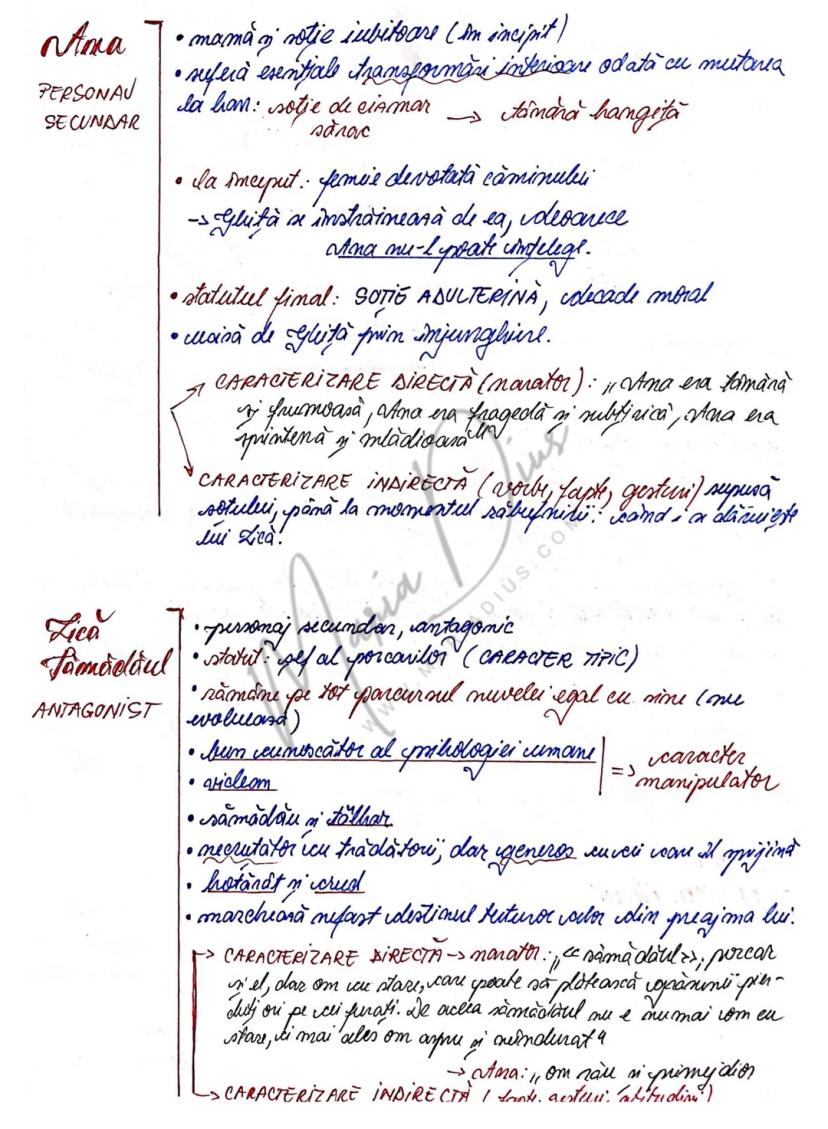 Ana
PERSONAJ
SECUNDAR
• mamă și soție iubitoare (în incipit)
• suferă esențiale transformări interioare odată cu mutarea
la han: soție de cizmar
sărac → tânără hangiță
• la început: femeie devotată căminului
→ Ghiță se înstrăinează de ea, deoarece
Ana nu-l poate înțelege.
• statutul final: SOȚIE ADULTERINĂ, decade moral
• ucisă de Ghiță prin înjunghiere.
→ CARACTERIZARE DIRECTĂ (narator): „Ana era tânără
și frumoasă, Ana era fragedă și subțirică, Ana era
sprintenă și mlădioasă"
CARACTERIZARE INDIRECTĂ (vorbe, fapte, gesturi) supusă
soțului, până la momentul răbufnirii: când i se dăruiește
lui Lică.
Lică
Sămădăul
ANTAGONIST
• personaj secundar, antagonic
• statut: șef al porcarilor (CARACTER TIPIC)
• rămâne pe tot parcursul nuvelei egal cu sine (nu
evoluează)
• bun cunoscător al psihologiei umane
• viclean
=> caracter
manipulator
• sămădău și tâlhar
• necruțător cu trădătorii, dar generos cu cei care îl sprijină
• hotărât și crud
• marchează nefast destinul tuturor celor din preajma lui.
→ CARACTERIZARE DIRECTĂ → narator: „« sămădăul», porcar
și el, dar om cu stare, care poate să plătească grăsunii pier-
duți ori pe cei furați. De aceea sămădăul nu e numai om cu
stare, ci mai ales om aspru și neîndurat"
→ Ana: „om rău și primejdios
→ CARACTERIZARE INDIRECTĂ (fapte, gesturi, atitudini)
Maria Dius